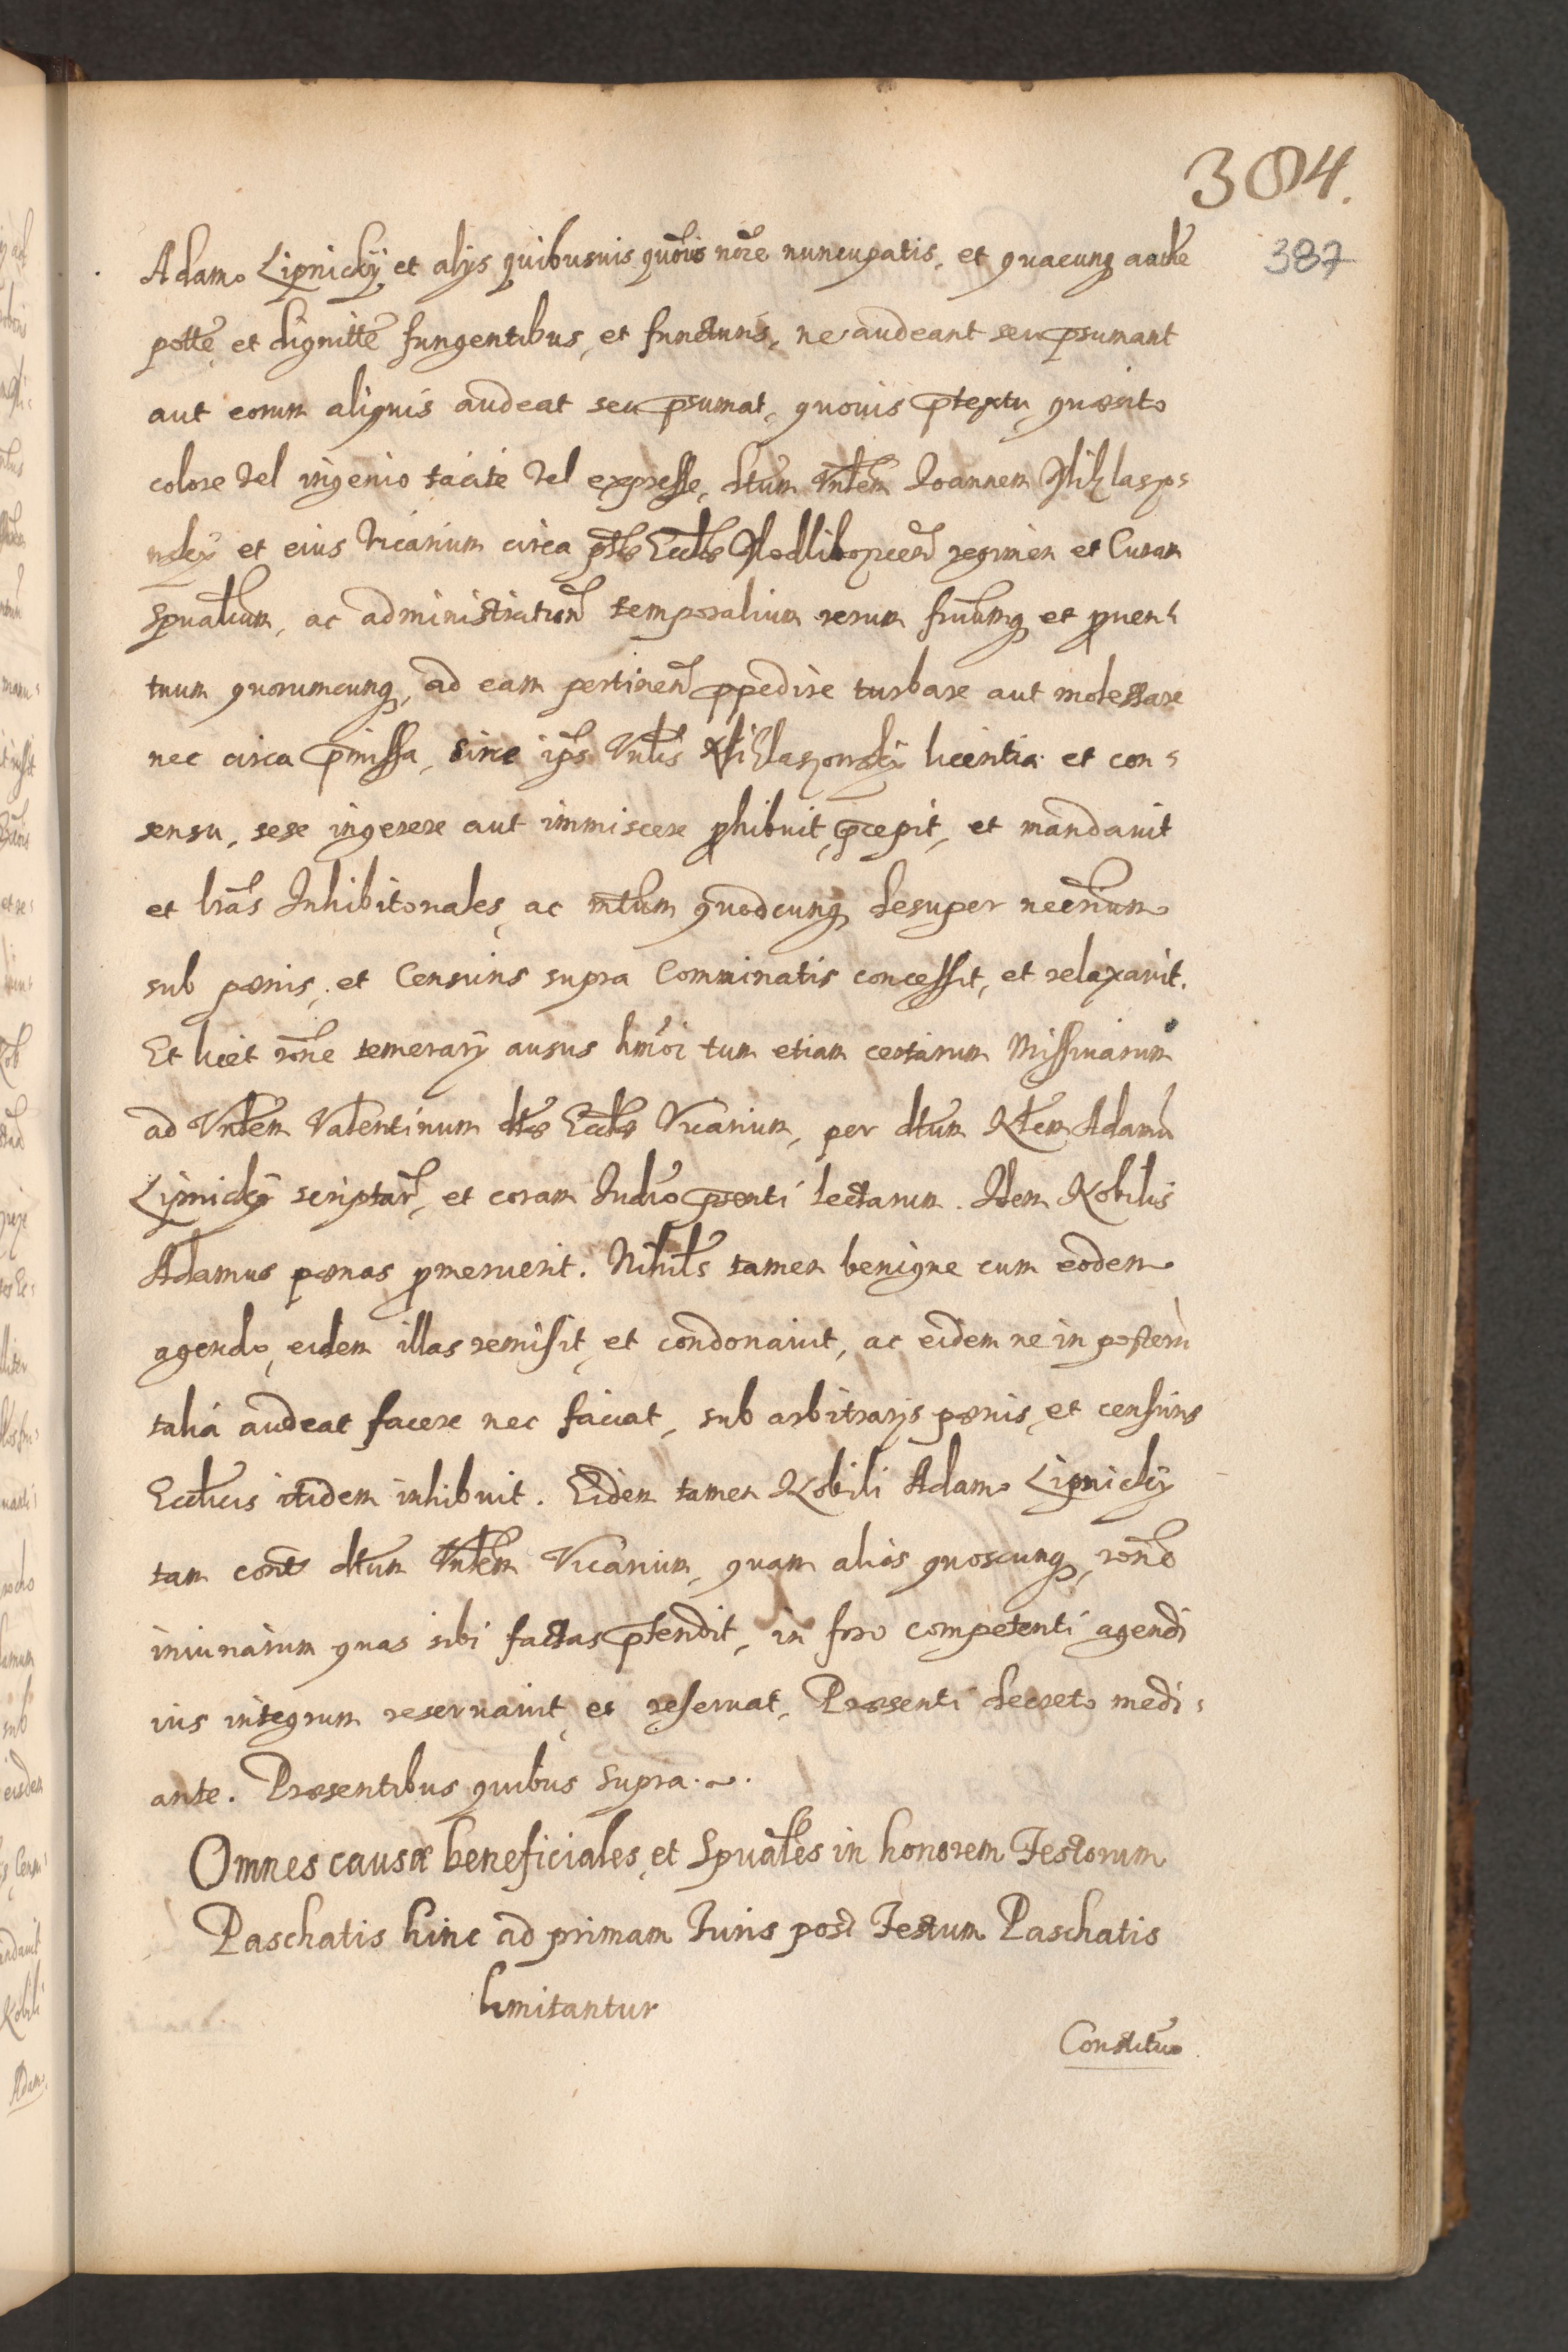 384.
387
Adamo Lipnicky et alijs quibusuis quõvis nõre nuncupatis, et quacunq; authẽ
potte, et dignitte fungentibus, et functuris, ne audeant seu psumant
aut eorum aliquis audeat seu psumat, quouis ptextu, quæsito
colore vel ingenio tacite vel expresse, dtum Vnlem Joannem
et eius Vicarium circa Eccles regimen et Curam
Spualium, ac administration temporalium rerum fructuumq; et prouen-
tuum quorumcunq;, ad eam pertinen ppedire turbare aut molestare
nec circa pmissa, sine ips Vnlis licentia et con-
sensu, sese ingerere aut immiscere prohibuit, pcepit, et mandauit
et lras Inhibitoriales, ac mtum quodcunq; desuper necrium
sub pœnis, et Censuris supra Comminatis concessit, et relaxauit.
Et licet rõne temerarij ausus hmõi tum etiam certarum Missiuarum
ad Vnlem Valentinum dtæ Eccles Vicarium, per dtum Nlem Adamũ
Lipnicky scriptar, et coram Judio psenti lectarum. Idem Nobilis
Adamus pœnas promeruerit. Nihilõs tamen benigne cum eodem
agendo, eidem illas remisit, et condonauit, ac eidem ne in posterũ
talia audeat facere nec faciat, sub arbitrarijs pœnis, et censuris
Ecclicis itidem inhibuit. Eidem tamen Nobili Adamo Lipnicky
tam contr dtum Vnlem Vicarium, quam alios quoscunq;, rõne
iniuriarum quas sibi factas ptendit, in foro competenti agendi
ius integrum reseruauit, et reseruat, Præsenti decreto medi-
ante. Præsentibus quibus supra.
Omnes causæ beneficiales, et Spuales in honorem Festorum
Paschatis hinc ad primam Juris post Festum Paschatis
limitantur
Constitũo